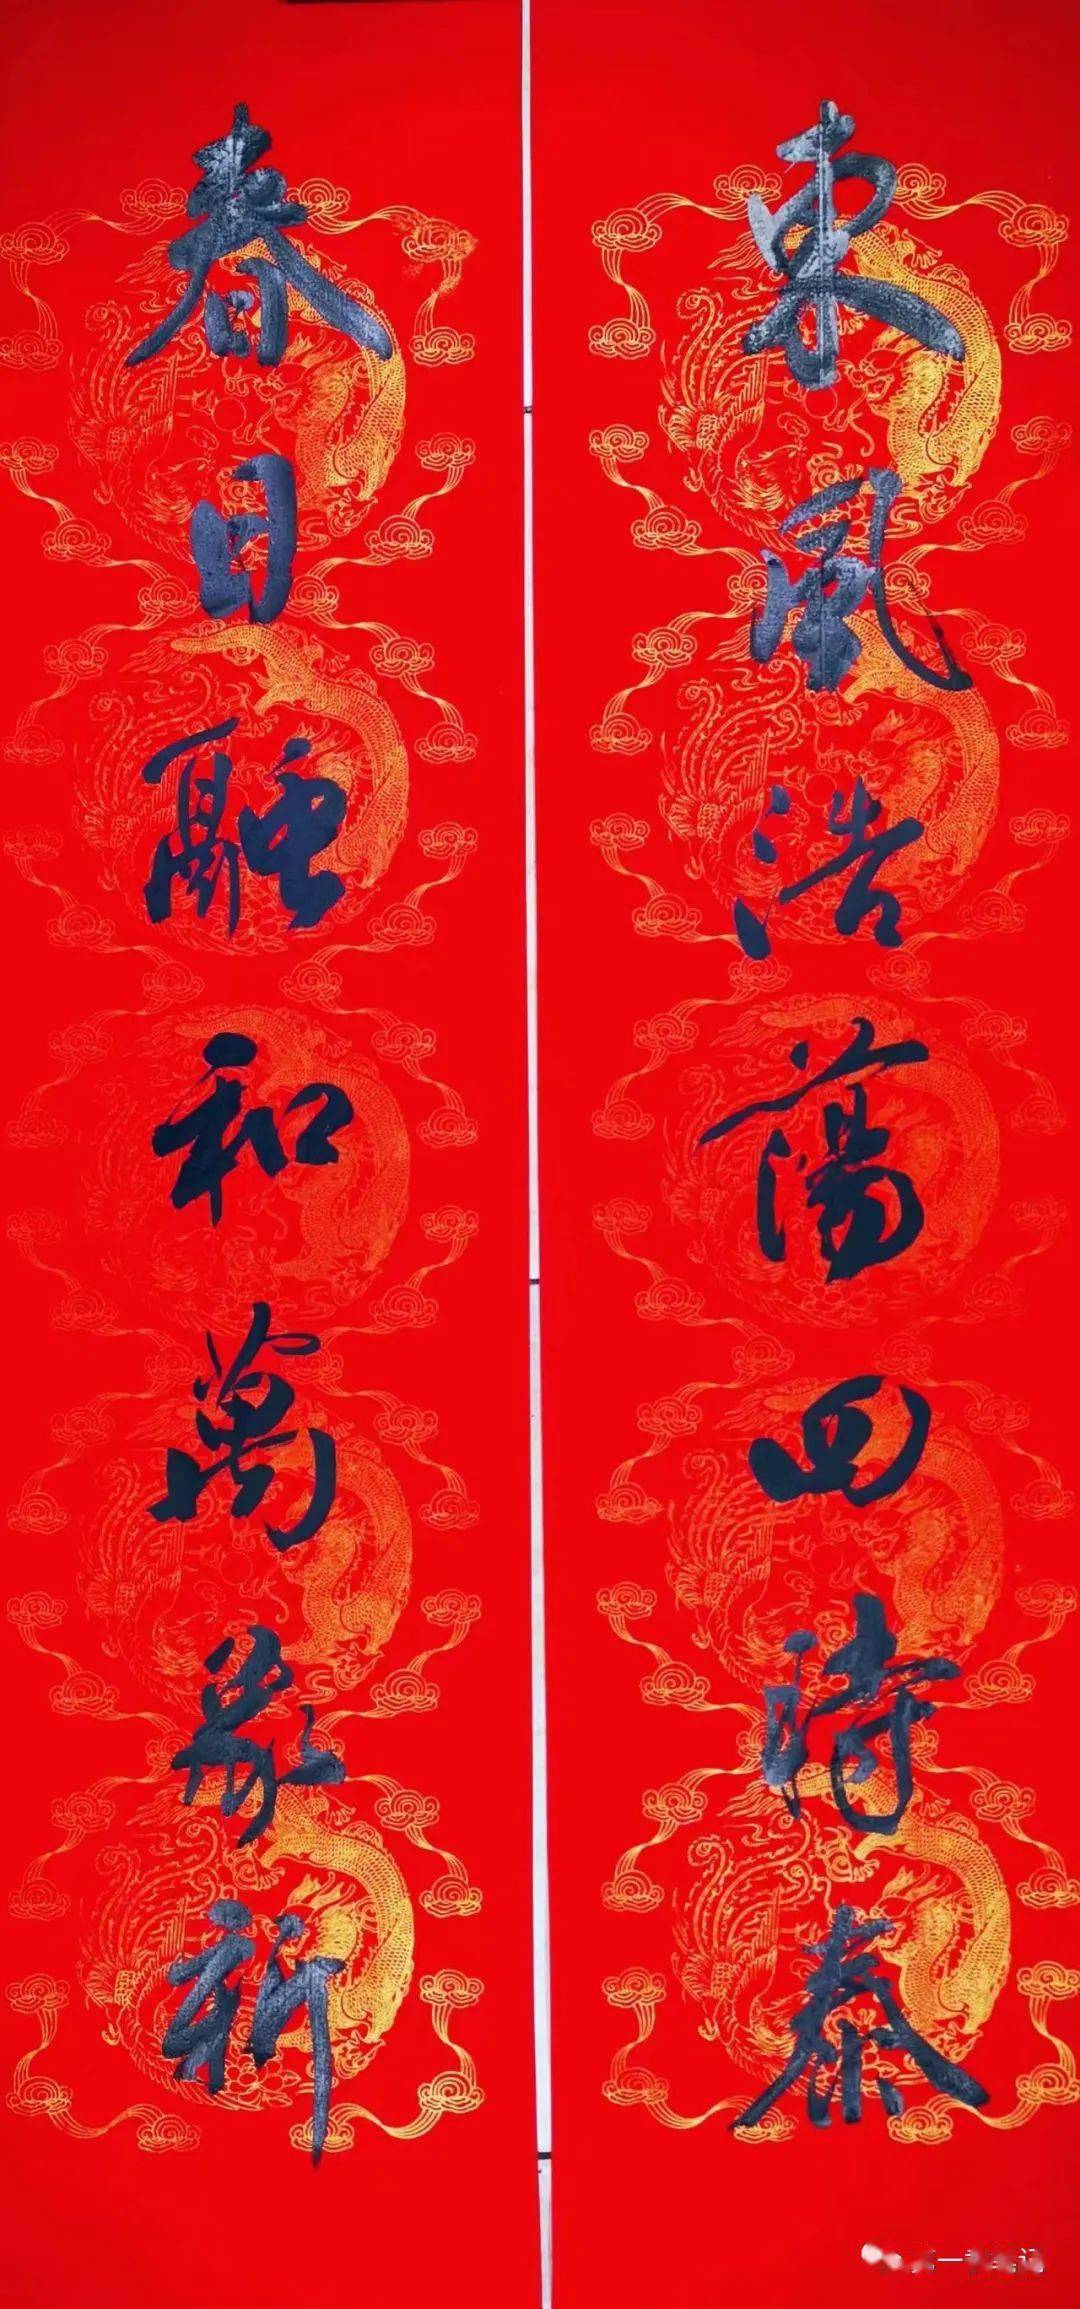 東風浩蕩四時泰
春日融和萬象新